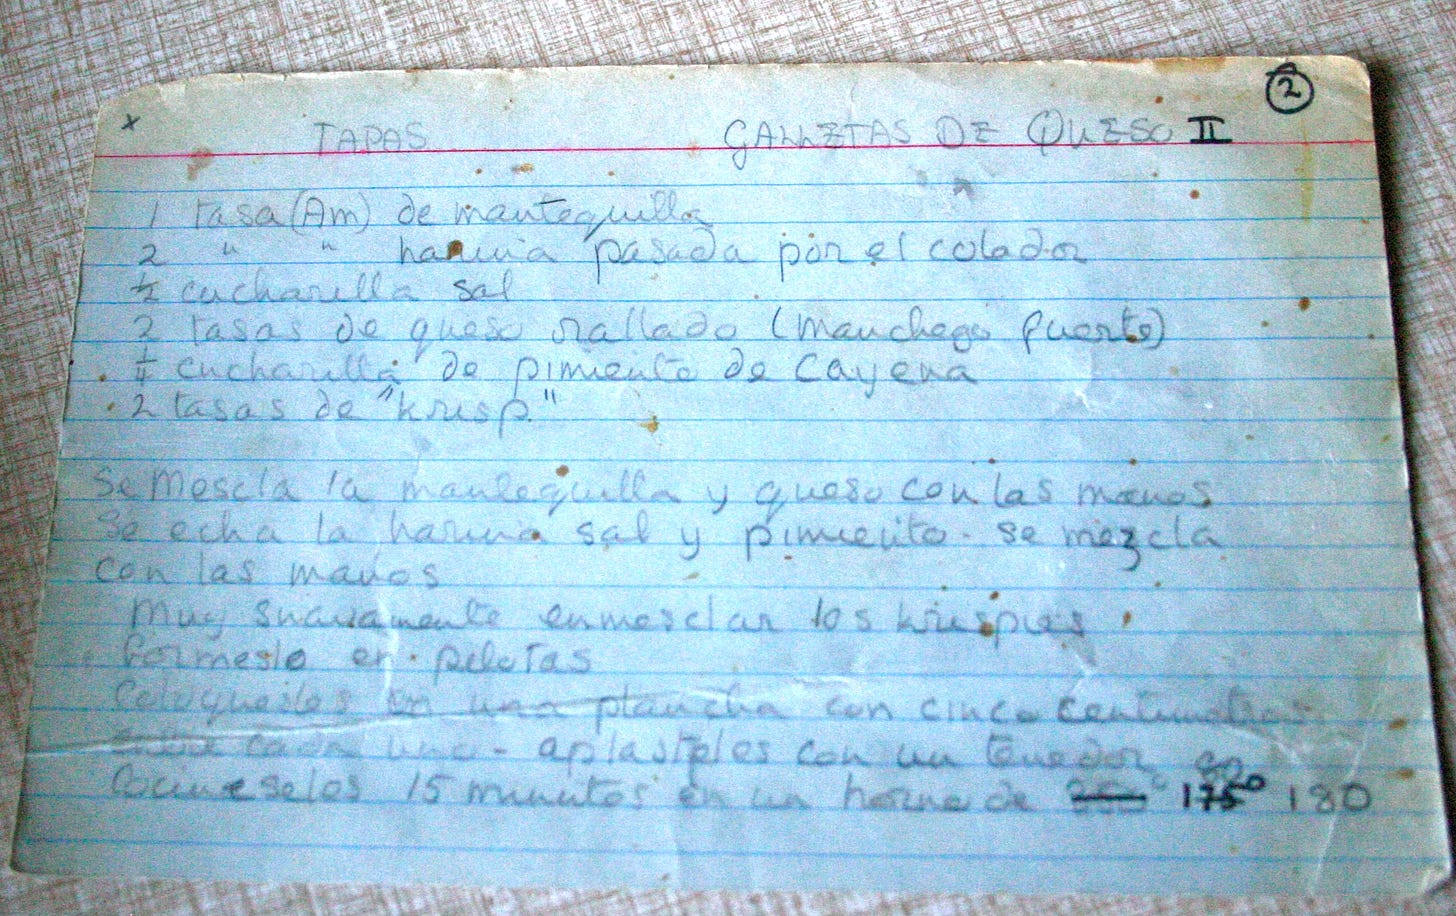 ②
x TAPAS GALLETAS DE QUESO II
1 tasa (Am) de mantequilla
2 " " harina pasada por el colador
½ cucharilla sal
2 tasas de queso rallado (manchego fuerte)
¼ cucharilla de pimiento de Cayena
2 tasas de "krisp"
Se mescla la mantequilla y queso con las manos
Se echa la harina sal y pimiento. se mezcla
con las manos
muy suavamente enmesclar los krispies
formeslo en pelotas
Coloqueslos en una plancha con cinco centimetros
entre cada uno - aplasteles con un tenedor
Cocineselos 15 minutos en un horno de 175° 180